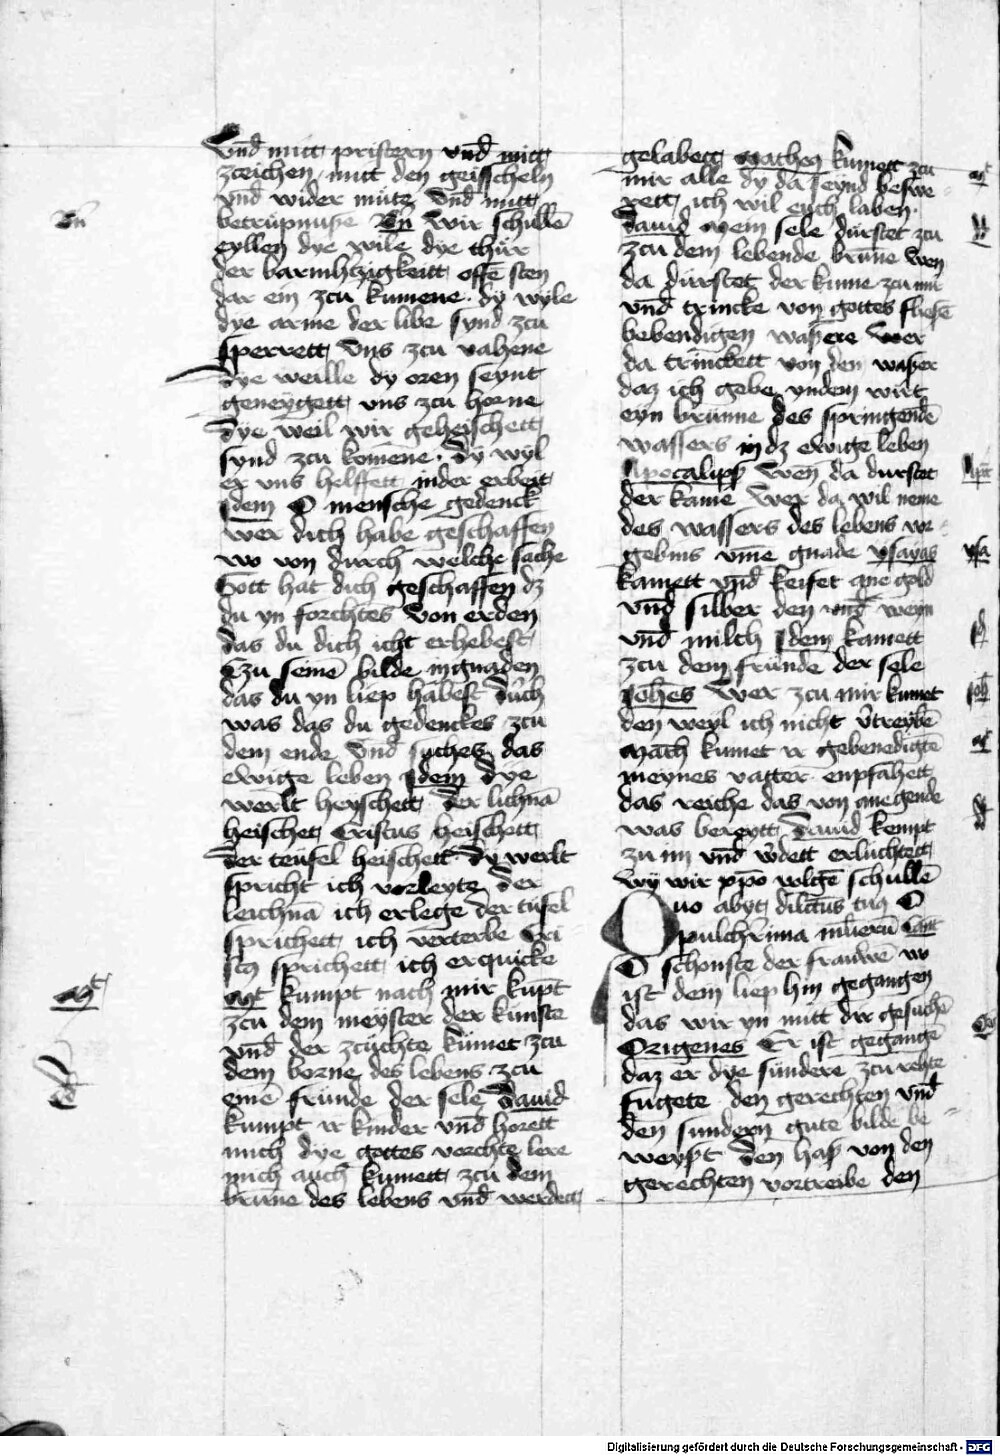 vnd mitt pristern vnd mitt
zceichen mitt den geisscheln
vnd wider mütz vnd mitt
betrüpnusse Bn̄ wir schullē
eyllen dye wile dye thür
der barmhtzigkeitt offē sten
dar ein zcu kumene · dy wyle
dye arme der libe synd zcu
sperrett vns zcu vahene
dye weille dy oren seynt
geneygett vns zcu horne
dye weil wir geheischett
synd zcu komene · dy wyl
er vns helffett inder erbeit
Idem O mensche gedenck
wer dich habe geschaffen
wo von durch welche sache
Gott hat dich geschaffen dz
du yn forchtes von erden
das du dich icht erhebest
Czu seinē bilde in gnaden
das du yn liep habest durch
was das du gedenckes zcu
dem ende vnd suches das
ewige leben Idem dye
werlt heyschett der lichnā
heischet Cristus heischett
der teüfel heischett dy werlt
spricht ich vorleyte der
leichnā ich erlege der tüfel
sprichett ich verterbe Cri
stꝯ sprichett ich erquicke
kumpt nach mir kupt
zcu dem meyster der künste
vnd der zcüchte kümet zcu
dem borne des lebens zcu
einē fründe der sele Dauid
kumpt ir kinder vnd horett
mich dye gottes vorchte lere
mich auch kumett zcu dem
brūne des lebens vnd werdett
gelabett Matheꝯ kumett zcu
mir alle dy da seynd beswe
rett ich wil euch laben ·
Dauid mein sele dürstet zcu
zcu dem lebende brūne wen
da dürstet der kume zcu mir
vnd trincke von gottes fliesē
bebendigen wassere wer
da trinckett von den wasser
daz ich gebe yndem wirt
eyn brunne des springendē
wassers in dz ewige leben
Apocalipp̄ wen da durstet
der kame wer da wil neme
des wassers des lebens vor
gebins vm̄e gnade ysayas
kamett vnd keifet ane gold
vnd silber den vnd weyn
vnd milch Idem kamett
zcu dem fründe der sele
Joh̄es wer zcu mir kumet
den weyl ich nicht v̄treybē
Math kumet ir gebenedigtē
meynes vatter enpfahett
das reiche das von anegende
was bereytt Dauid kempt
zu im vnd w̄dett erlüchtett
wy wir xp̄o volgē schullē
Quo abyt dilectus tuꝯ O
pulch̄rima mlierū Cant
O schonste der frauwē wo
ist dem liep hin gegangen
das wir yn mitt dir gesuchē
Origenes Er ist gegangē
daz er dye sündere zcu rehte
fugete den gerechten vnd
den sundern gute bilde be
weyst den haß von den
gerechten vortreibe den
Digitalisierung gefördert durch die Deutsche Forschungsgemeinschaft - DFG